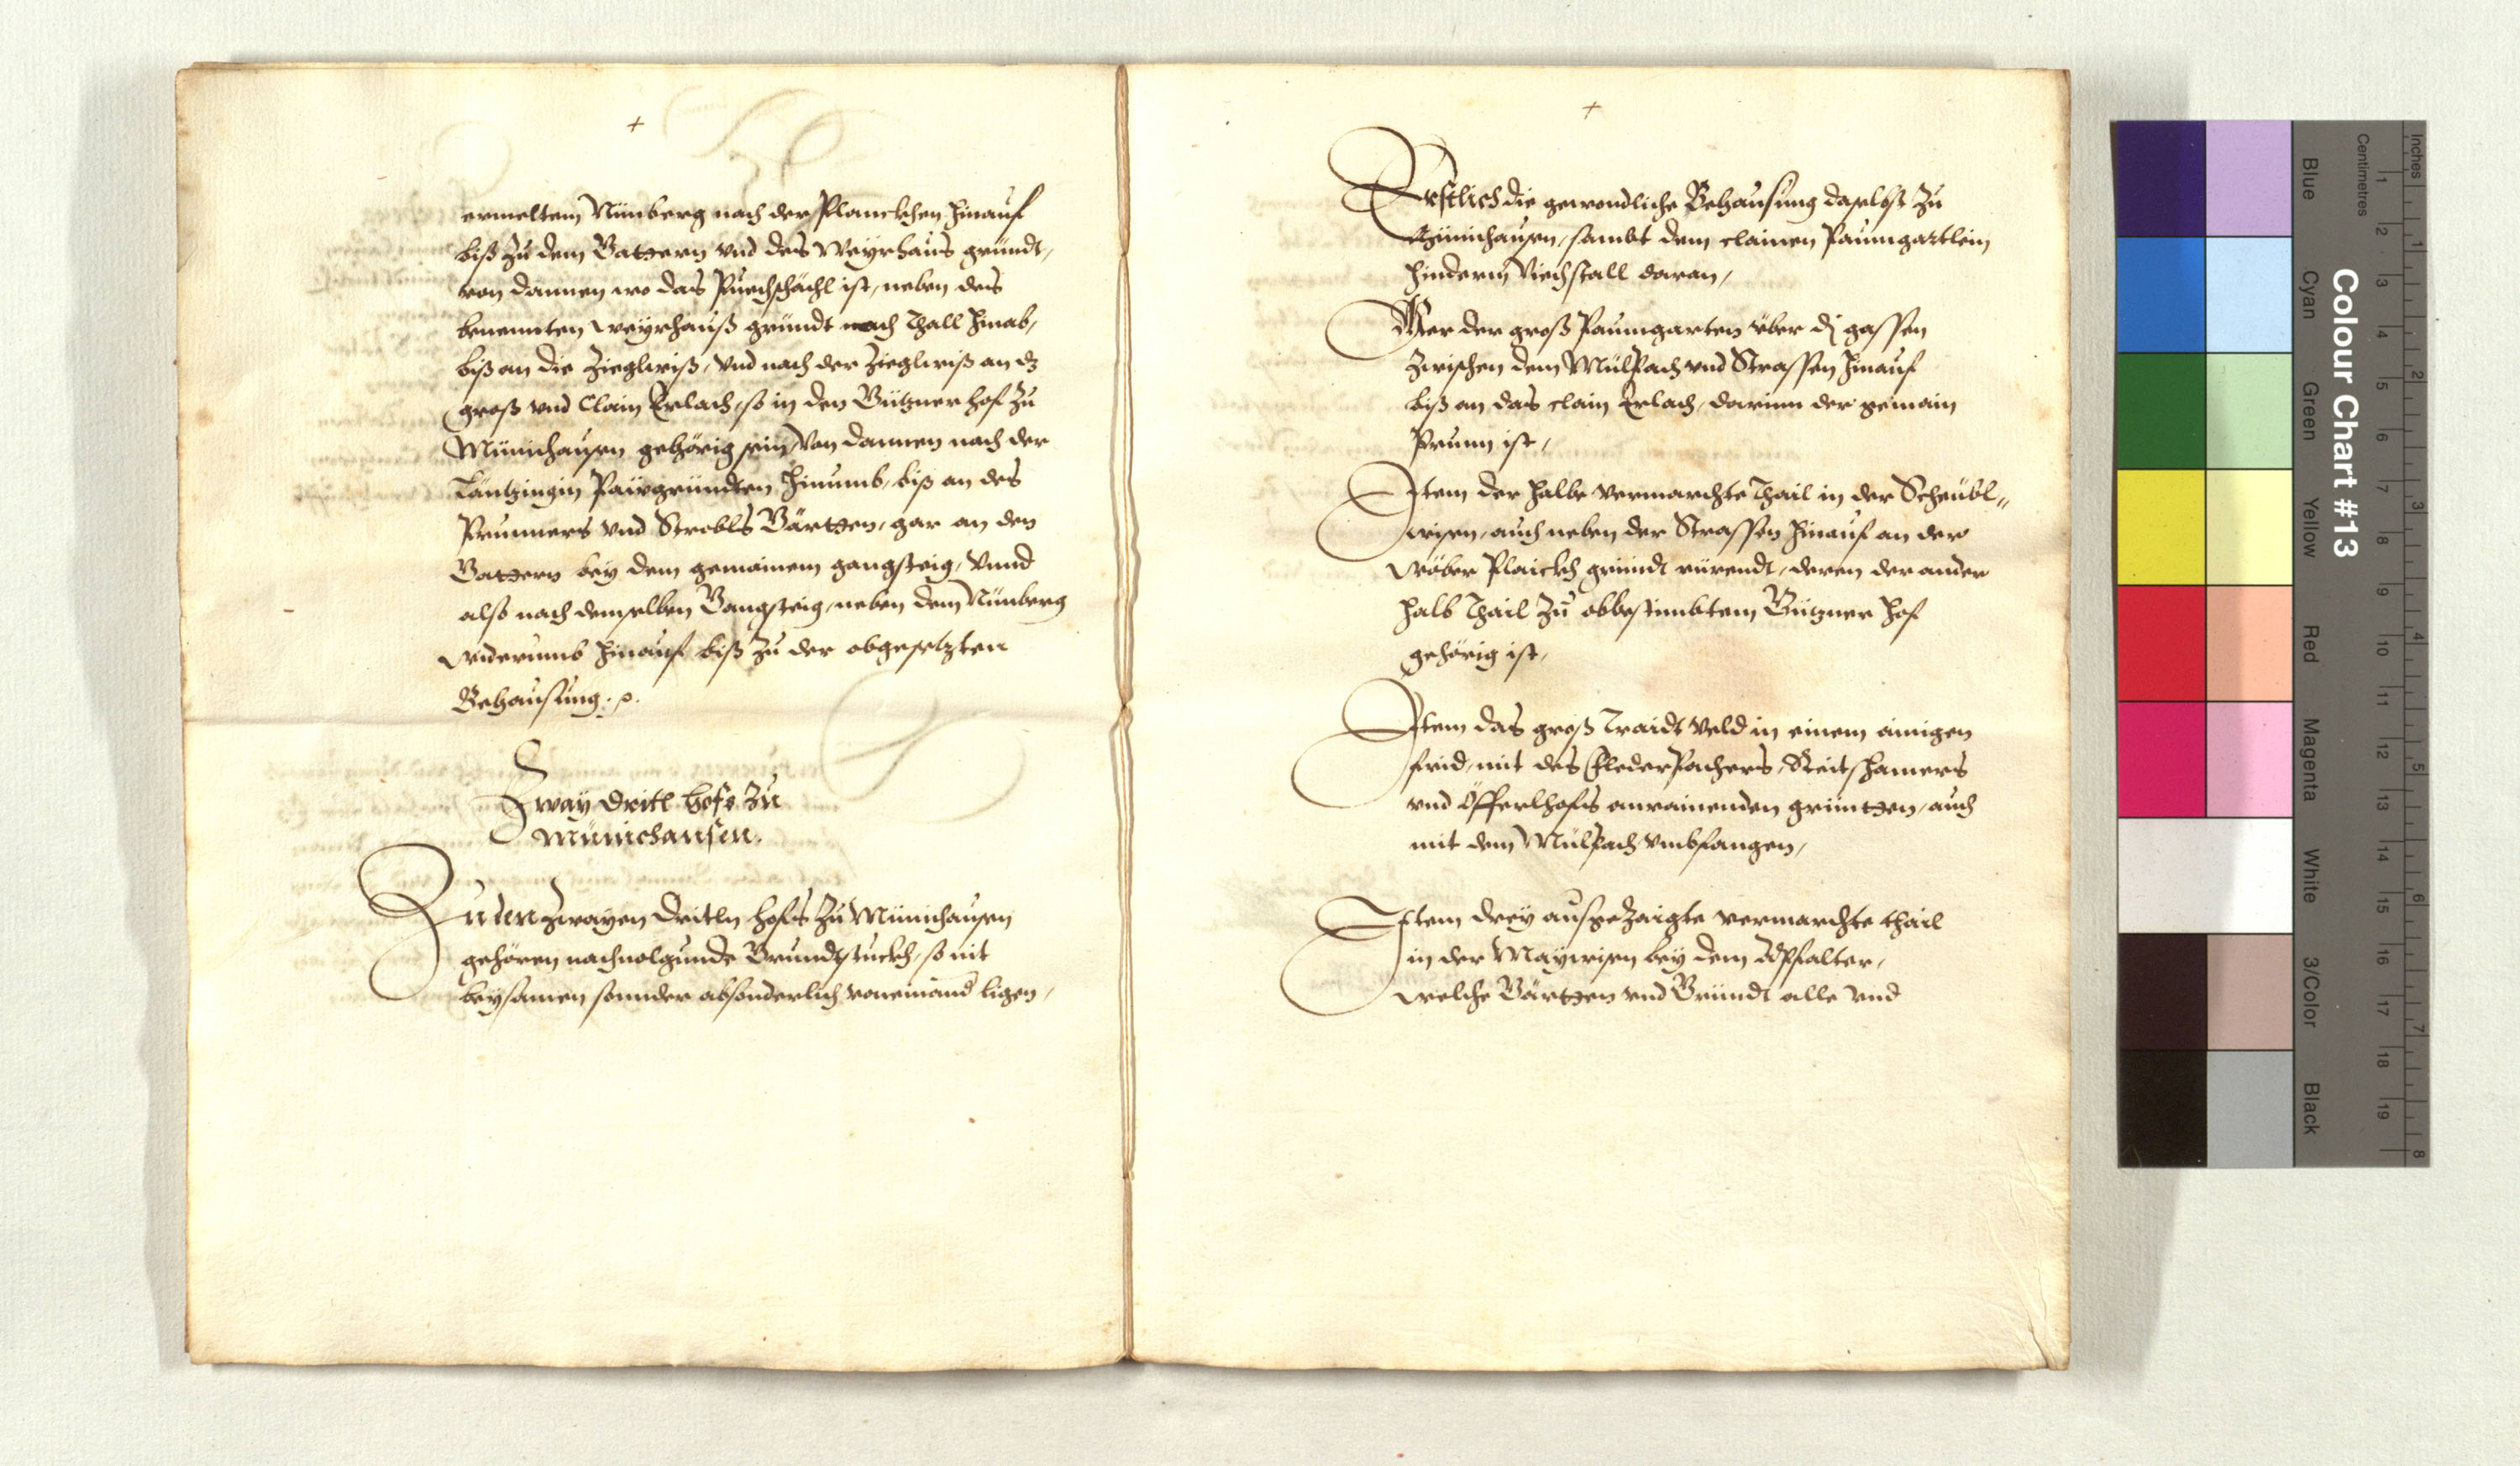 +
ermeltem Nünberg nach der Planckhen hinauf
biß zu dem Gattern vnd des Weyrhaus gründt,
von dannen wo das Puechschächl ist, neben des
benennten weyrhauß gründt nach Thall hinab,
biß an die Zieglwiß, vnd nach der Zieglwiß an dz
groß vnd Clain Erlach, so in den Gützner hof zu
Münichausen gehörig sein, Von dannen nach der
Päwrgründten hinumb, biß an des
Prunners vnd Strobls Gärtten, gar an den
Gattern bey dem gemainem gangsteig, vnnd
also nach demselben Gangsteig, neben dem Nünberg
widerumb hinauf biß zu der obgesetzten
Behausung.
Zway dritl hofs zu
Münichausen.
Zu den zwayen Dritln hofs zu Münichausen
gehören nachuolgunde Grundtstuckh, so nit
beysamen sonnder absonderlich voneinand ligen,
+
Erstlich die gewondliche Behausung daselbs zu
Münichausen, sambt dem clainen Paumgartlein
hinderm Viechstall daran,
Mer der groß Paumgarten über di gassen
zwischen dem Mülpach vnd Strassen hinauf
biß an das clain Erlach, darinn der gemain
Prunn ist,
Item der halbe vermarchte Thail in der Scheübl„
wisen, auch neben der Strassen hinauf an der
Wöber Plaickh gründt rürendt, deren der ander
halb Thail zu obbestimbtem Gützner hof
gehörig ist,
Item das groß Traidt Veld in einem ainigen
frid, mit des Flederpachers, Reitshamers
vnd Öfferlhofs anrainenden grüntten, auch
mit dem Mülpach vmbfangen,
Item drey außgezaigte vermarchte thail
in der Maywisen bey dem Apfalter,
welche Gärtten vnd Gründt alle vnd
Colour Chart #13
Blue
Cyan
Green
Yellow
Red
Magenta
White
3/Color
Black
Centimetres
1 2 3 4 5 6 7 8 9 10 11 12 13 14 15 16 17 18 19
Inches
1 2 3 4 5 6 7 8